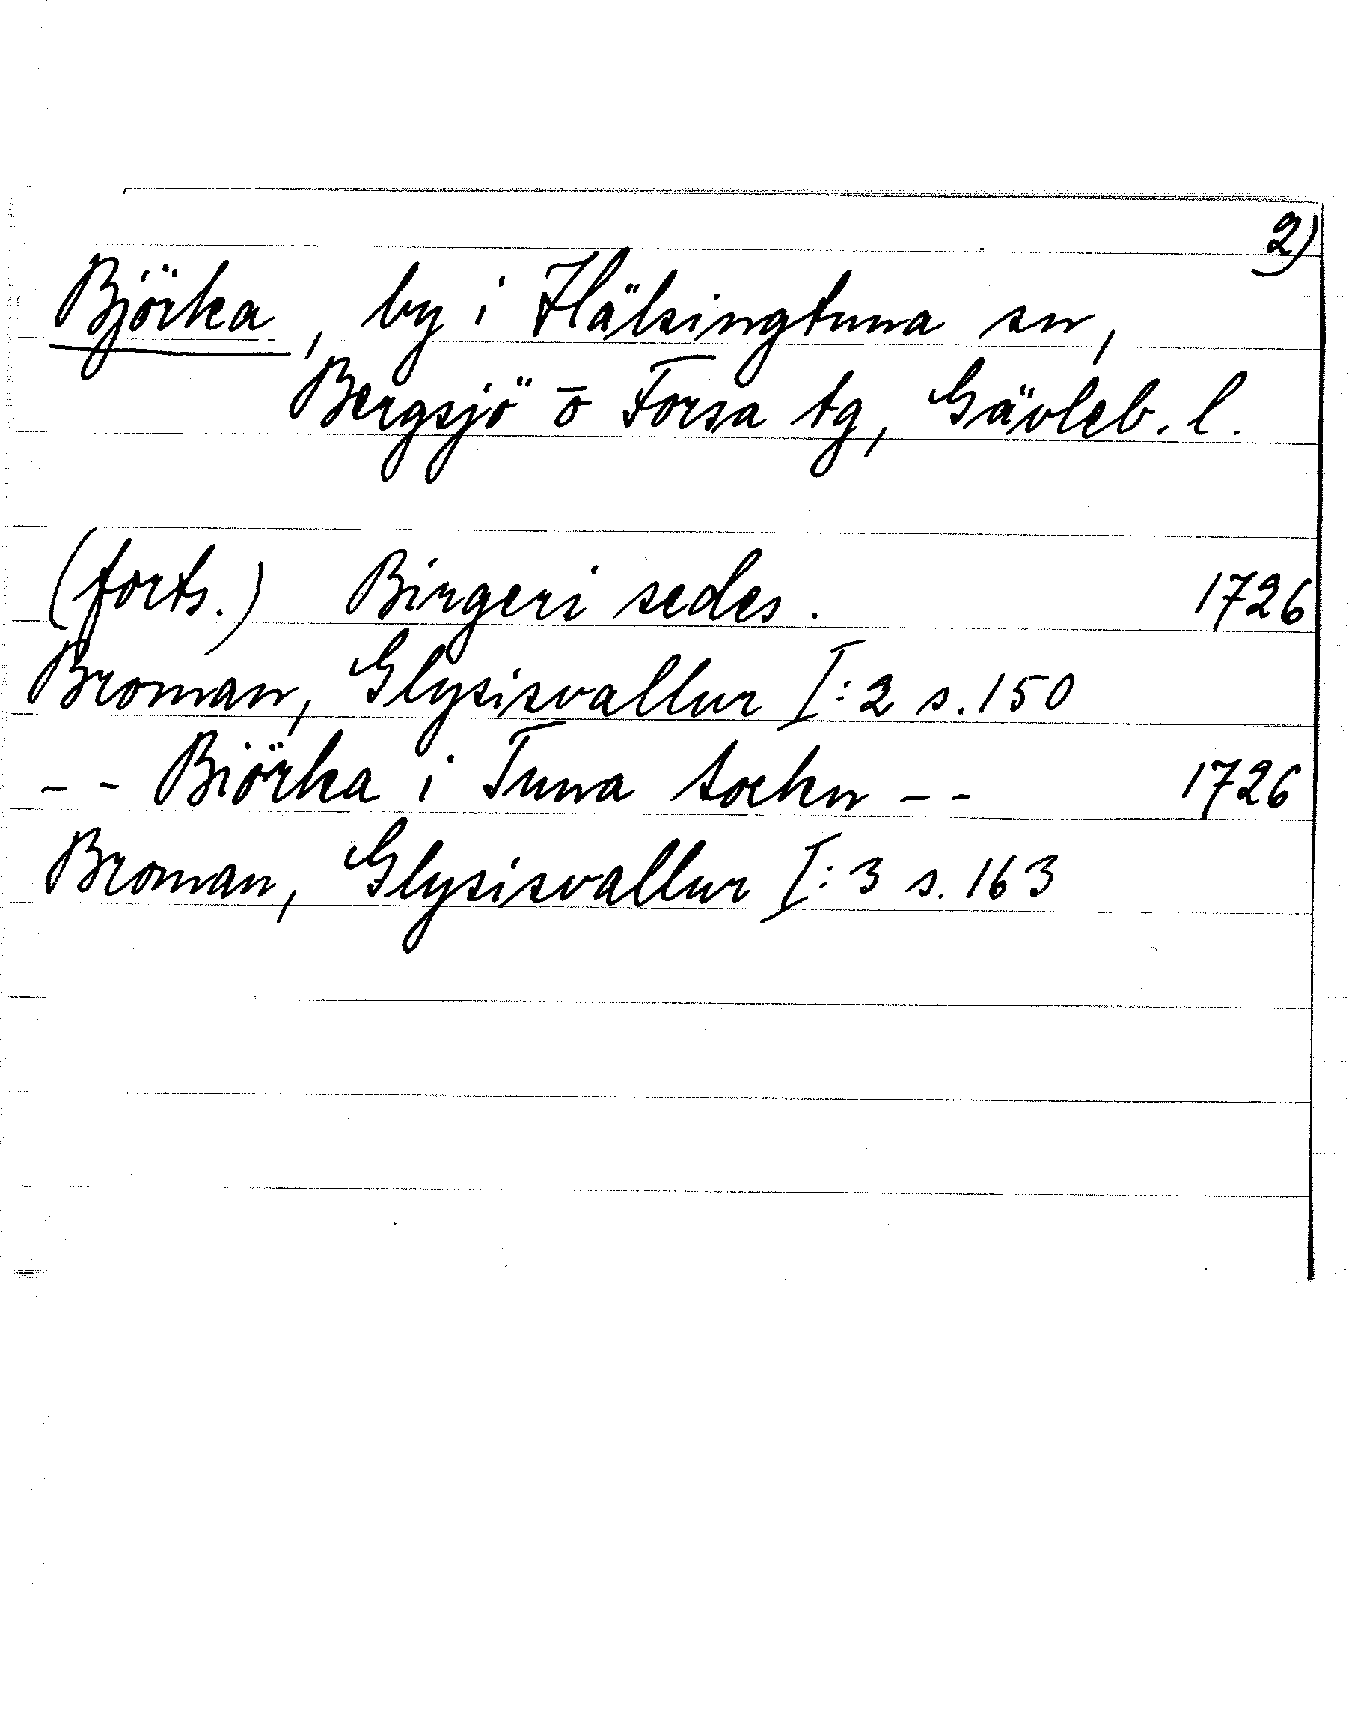 2)
Björka, by i Hälsingtuna sn,
Bergsjö o Forsa tg, Gävleb. l.
(forts.) Birgeri sedes. 1726
Broman, Glysisvallur I:2 s. 150
-- Biörka i Tuna sockn -- 1726
Broman, Glysisvallur I:3 s. 163